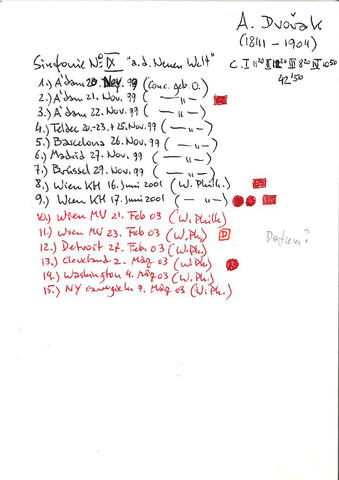 A. Dvořak
(1841 - 1904)
Sinfonie No IX "a. d. Neuen Welt"
C. I 11'20 II 12'20 III 8'20 IV 10'50
42'50
1.) A'dam 20. Nov. 99 (Conc. geb. O.)
2.) A'dam 21. Nov. 99 ( — " — )
3.) A'dam 22. Nov. 99 ( — " — )
4.) Teldec 20.-23. + 25. Nov. 99 ( — " — )
5.) Barcelona 26. Nov. 99 ( — " — )
6.) Madrid 27. Nov. 99 ( — " — )
7.) Brüssel 29. Nov. 99 ( — " — )
8.) Wien KH 16. Juni 2001 (W. Philh.)
9.) Wien KH 17. Juni 2001 ( — " — )
10.) Wien MV 21. Feb 03 (W. Philh)
11.) Wien MV 23. Feb 03 (W. Ph.) D
12.) Detroit 27. Feb 03 (W. Ph.)
Datum?
13.) Cleveland 2. März 03 (W. Ph.)
14.) Washington 4. März 03 (W. Ph.)
15.) NY Carnegie H. 9. März 03 (W. Ph.)